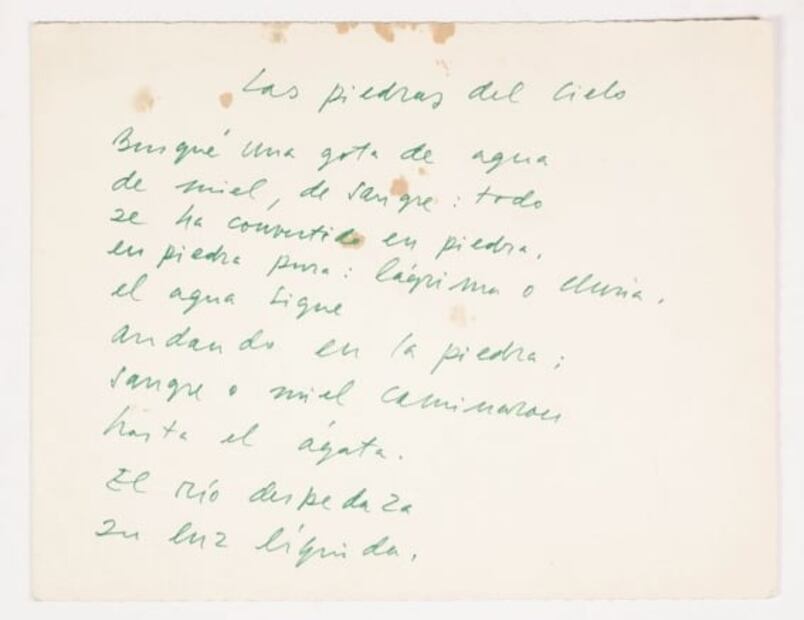 Las piedras del Cielo
Busqué una gota de agua
de miel, de sangre: todo
se ha convertido en piedra,
en piedra pura: lágrima o lluvia,
el agua sigue
andando en la piedra;
sangre o miel caminaron
hasta el ágata.
El río despedaza
su luz líquida,